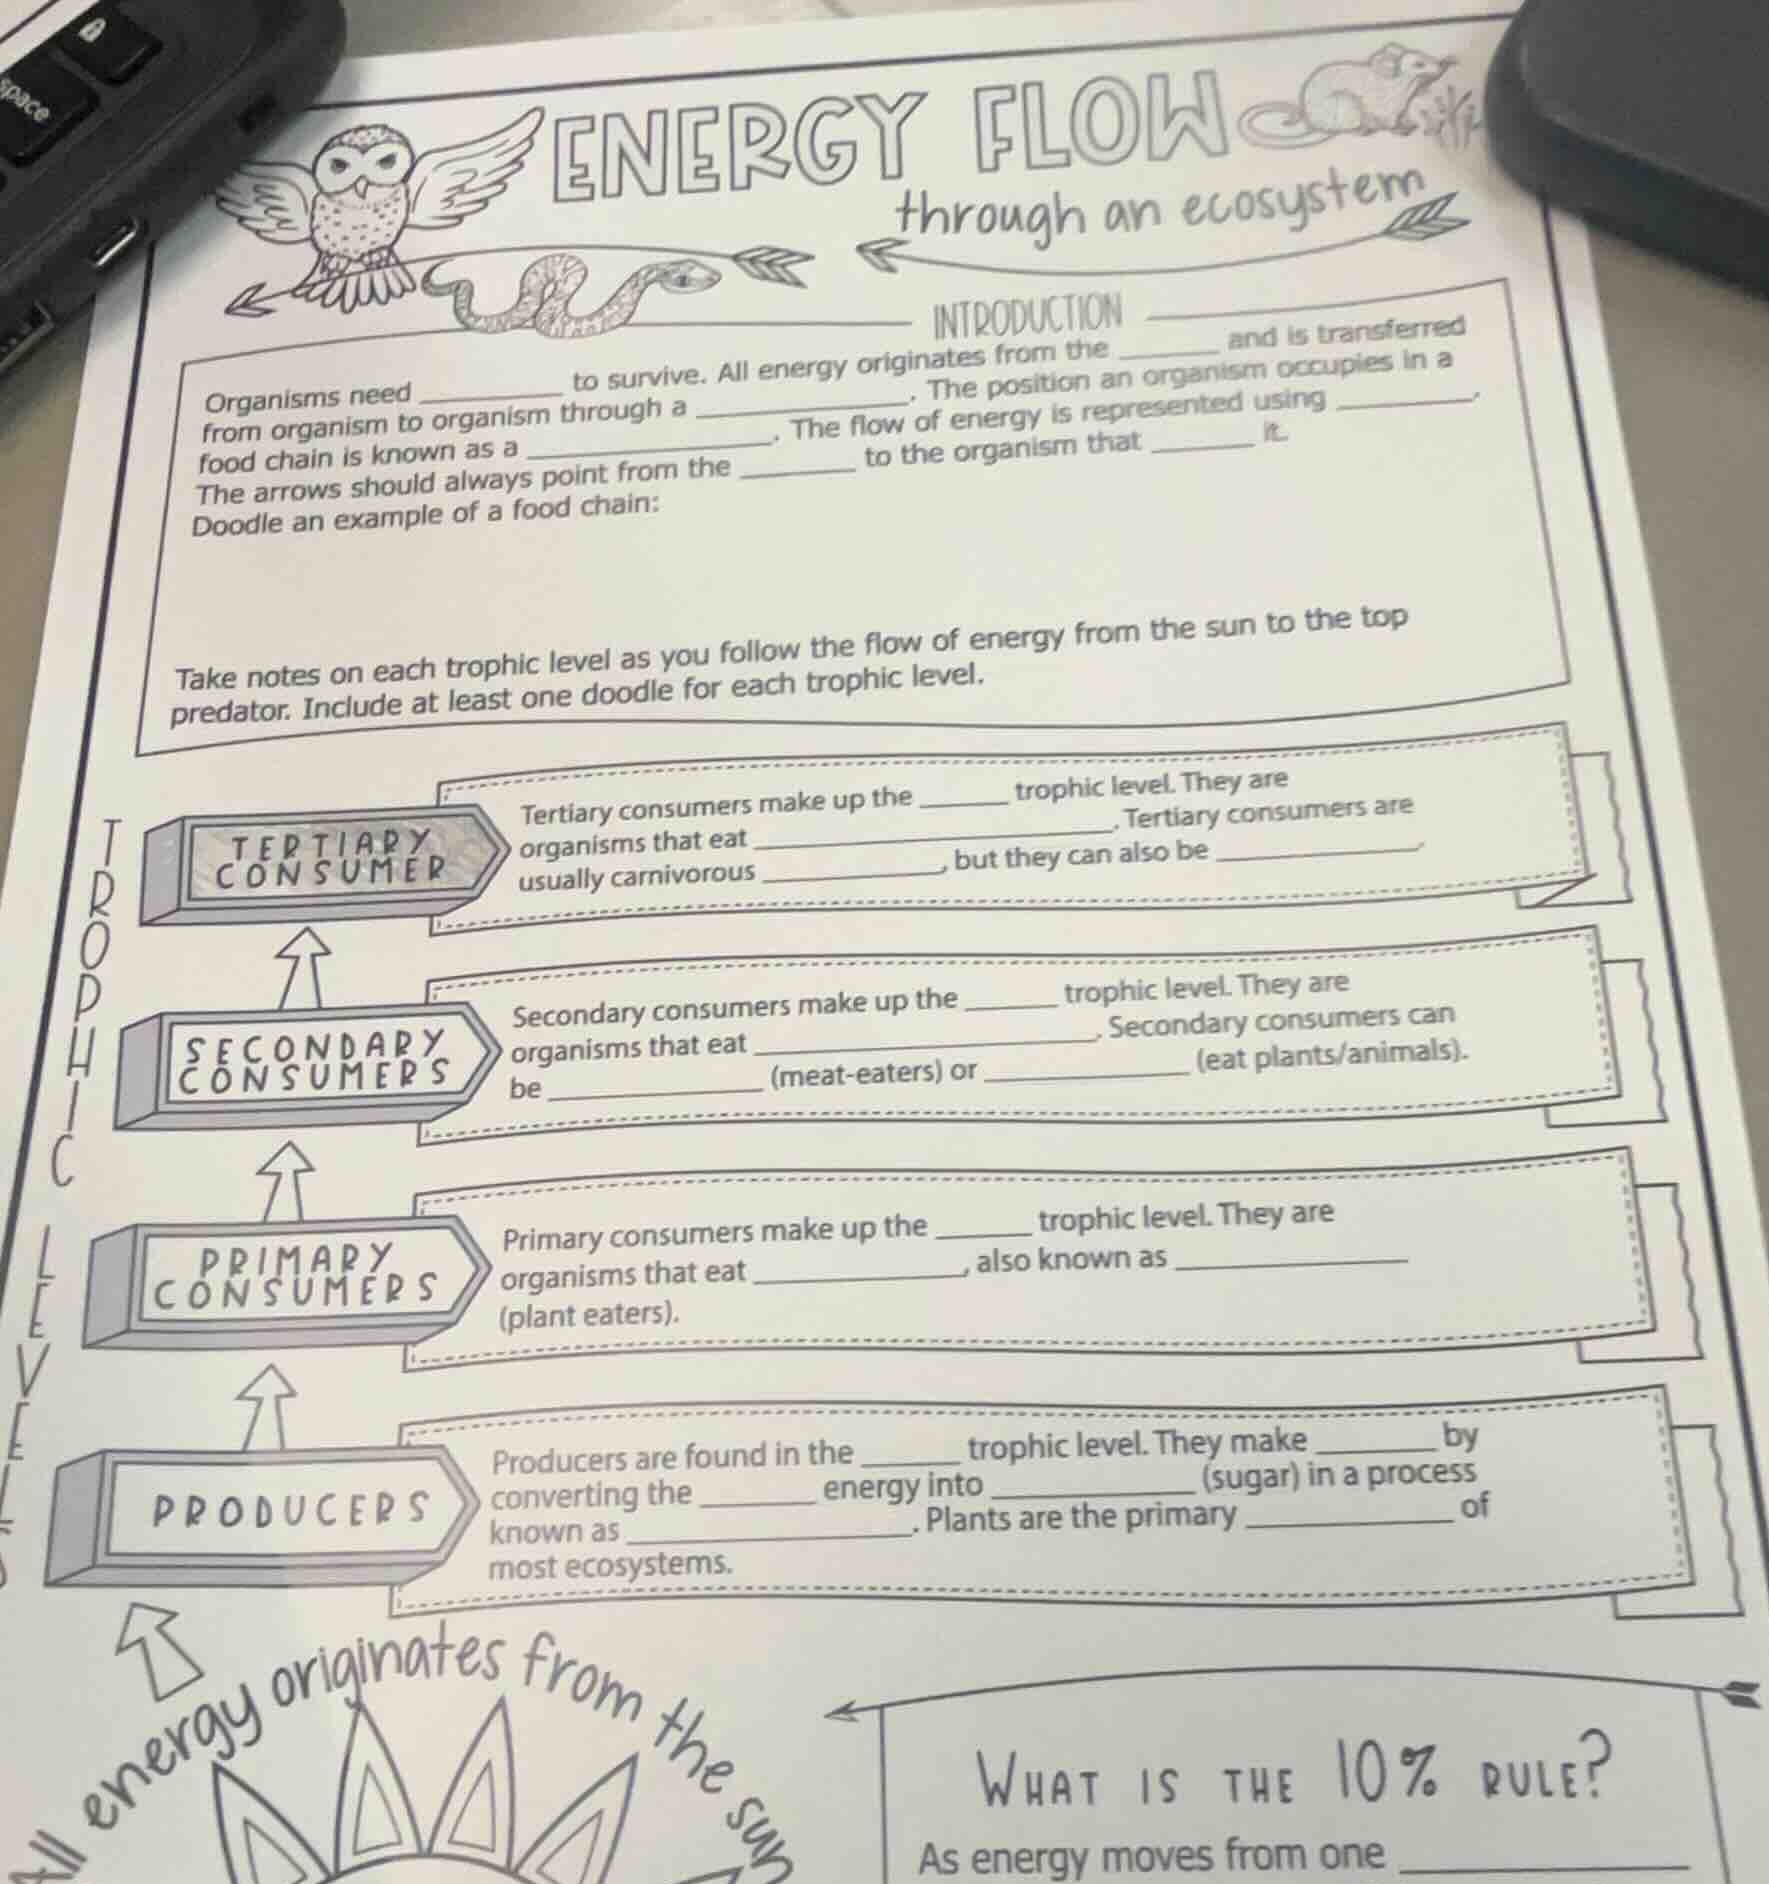 space
ENERGY FLOW
through an ecosystem
INTRODUCTION
Organisms need __________ to survive. All energy originates from the _______ and is transferred
from organism to organism through a _______________. The position an organism occupies in a
food chain is known as a _________________. The flow of energy is represented using __________.
The arrows should always point from the ________ to the organism that _______ it.
Doodle an example of a food chain:
Take notes on each trophic level as you follow the flow of energy from the sun to the top
predator. Include at least one doodle for each trophic level.
TROPHIC LEVELS
TERTIARY
CONSUMER
Tertiary consumers make up the ______ trophic level. They are
organisms that eat _________________________. Tertiary consumers are
usually carnivorous ____________, but they can also be ______________.
SECONDARY
CONSUMERS
Secondary consumers make up the ______ trophic level. They are
organisms that eat ________________________. Secondary consumers can
be ______________ (meat-eaters) or ______________ (eat plants/animals).
PRIMARY
CONSUMERS
Primary consumers make up the ______ trophic level. They are
organisms that eat ______________, also known as ________________
(plant eaters).
PRODUCERS
Producers are found in the ______ trophic level. They make ________ by
converting the ________ energy into _____________ (sugar) in a process
known as ___________________. Plants are the primary ______________ of
most ecosystems.
All energy originates from the sun
WHAT IS THE 10% RULE?
As energy moves from one __________________